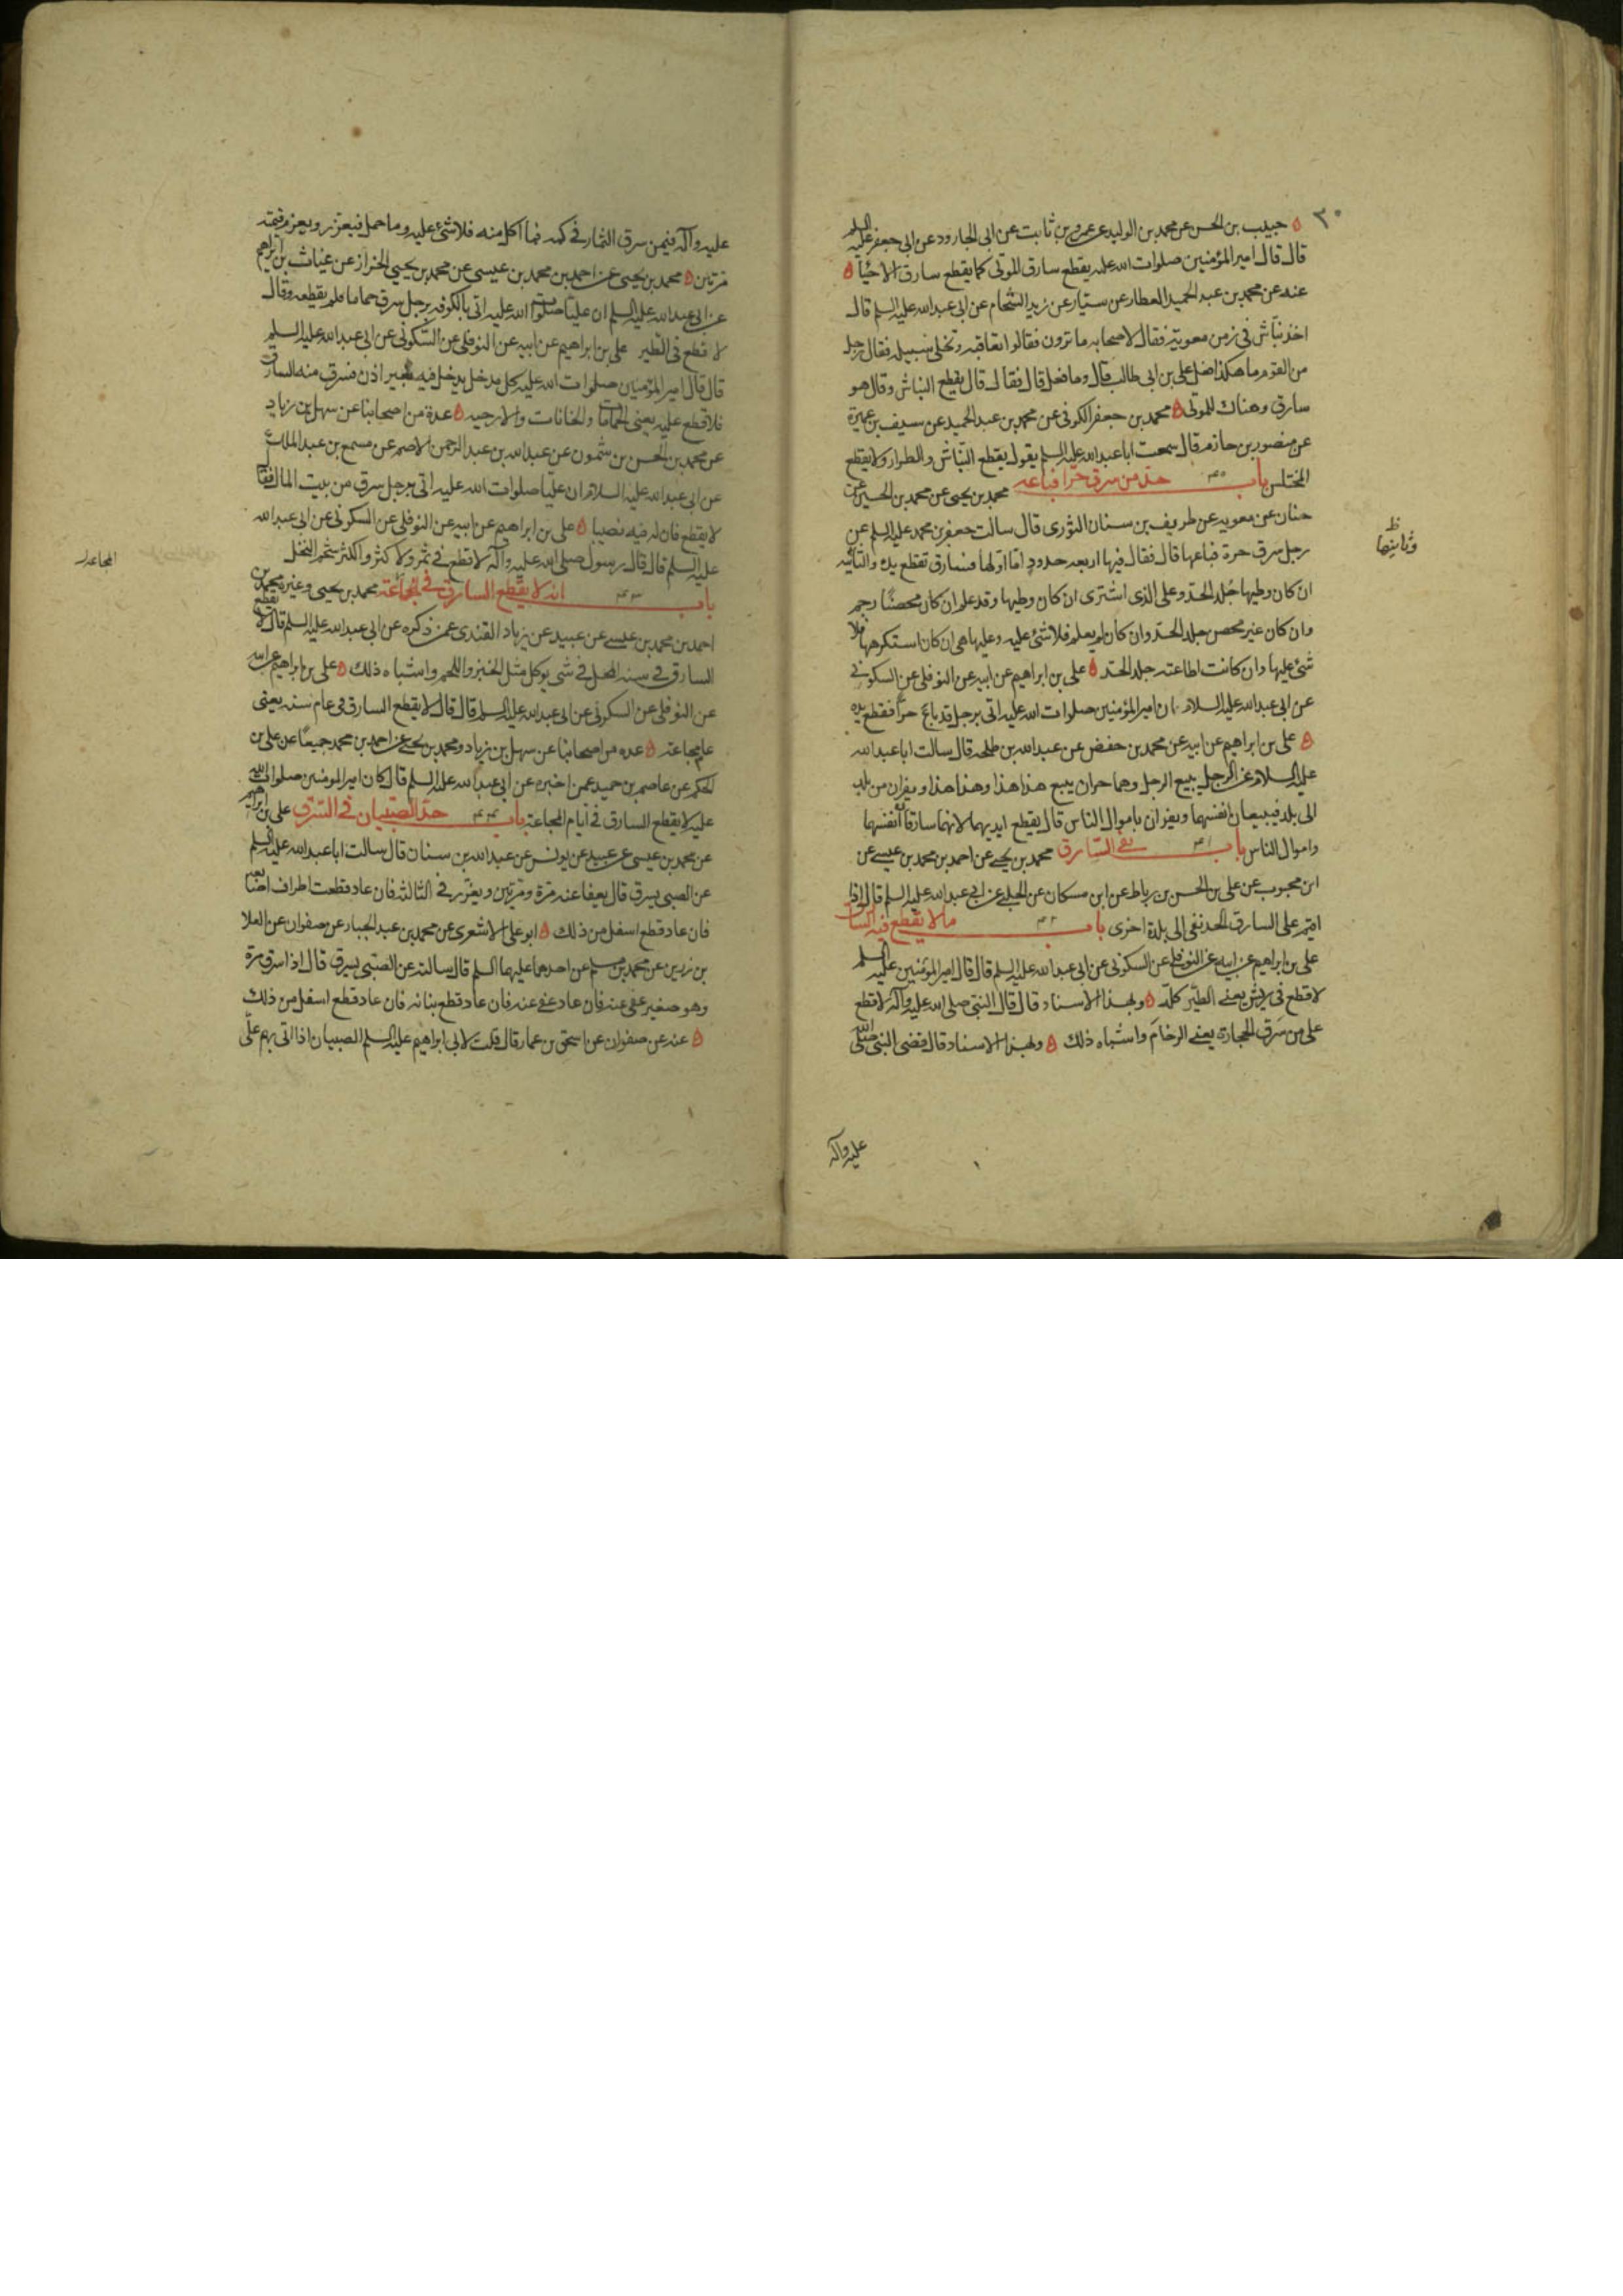 ٣٠
ه حبيب بن الحسن عن محمد بن الوليد عن عمرو بن ثابت عن ابى الجارود عن ابى جعفر عليه السلم
قال قال امير المؤمنين صلوات الله عليه يقطع سارق الموتى كما يقطع سارق الاحياء ه
عنه عن محمد بن عبد الحميد العطار عن سيار عن زيد الشحام عن ابى عبد الله عليه السلم قال
اخذ نباش فى زمن معوية فقال لاصحابه ما ترون فقالوا تعاقبه وتخلى سبيله فقال رجل
من القوم ما هكذا فعل على بن ابى طالب قال وما فعل قال فقال قال يقطع النباش وقال هو
سارق وهتاك للموتى ه محمد بن جعفر الكوفى عن محمد بن عبد الحميد عن سيف بن عميرة
عن منصور بن حازم قال سمعت ابا عبد الله عليه السلم يقول يقطع النباش والطرار ولا يقطع
المختلس باب حد من سرق حرا فباعه محمد بن يحيى عن محمد بن الحسين عن
حنان عن معوية عن طريف بن سنان الثورى قال سالت جعفر بن محمد عليه السلم عن
رجل سرق حرة فباعها قال فقال فيها اربعة حدود اما اولها فسارق تقطع يده والثانية
ان كان وطيها جلد الحد وعلى الذى اشترى ان كان وطيها وقد علم ان كان محصنا رجم
وان كان غير محصن جلد الحد وان كان لم يعلم فلا شئ عليه وعليها هى ان كان استكرهها فلا
شئ عليها وان كانت اطاعته جلد الحد ه على بن ابراهيم عن ابيه عن النوفلى عن السكونى
عن ابى عبد الله عليه السلام ان امير المؤمنين صلوات الله عليه اتى برجل قد باع حرا فقطع يده
ه على بن ابراهيم عن ابيه عن محمد بن حفص عن عبد الله بن طلحه قال سالت ابا عبد الله
عليه السلام عن الرجل يبيع الرجل وهما حران يبيع هذا هذا وهذا هذا ويفران من بلد
الى بلد فيبيعان انفسهما ويفران باموال الناس قال يقطع ايديهما لانهما سارقا انفسهما
واموال الناس باب نفى السارق محمد بن يحيى عن احمد بن محمد بن عيسى عن
ابن محبوب عن على بن الحسن بن رباط عن ابن مسكان عن الحلبى عن ابى عبد الله عليه السلم قال اذا
اقيم على السارق الحد نفى الى بلدة اخرى باب ما لا يقطع فيه السارق
على بن ابراهيم عن ابيه عن النوفلى عن السكونى عن ابى عبد الله عليه السلم قال قال امير المؤمنين عليه السلم
لا قطع فى ريش يعنى الطير كله ه وبهذا الاسناد قال قال النبى صلى الله عليه وآله لا قطع
على من سرق الحجارة يعنى الرخام واشباه ذلك ه وبهذا الاسناد قال قضى النبى صلى الله
عليه وآله
عليه وآله فيمن سرق الثمار فى كمه فما اكل منه فلا شئ عليه وما حمل فيعزر ويغرم قيمته
مرتين ه محمد بن يحيى عن احمد بن محمد بن عيسى عن محمد بن يحيى الخزاز عن غياث بن ابراهيم
عن ابى عبد الله عليه السلم ان عليا صلوات الله عليه اتى بالكوفه برجل سرق حماما فلم يقطعه وقال
لا قطع فى الطير على بن ابراهيم عن ابيه عن النوفلى عن السكونى عن ابى عبد الله عليه السلم
قال قال امير المؤمنين صلوات الله عليه كل مدخل يدخل فيه بغير اذن فسرق منه السارق
فلا قطع عليه يعنى الحمامات والخانات والارحيه ه عدة من اصحابنا عن سهل بن زياد
عن محمد بن الحسن بن شمون عن عبد الله بن عبد الرحمن الاصم عن مسمع بن عبد الملك
عن ابى عبد الله عليه السلام ان عليا صلوات الله عليه اتى برجل سرق من بيت المال فقال
لا يقطع فان له فيه نصيبا ه على بن ابراهيم عن ابيه عن النوفلى عن السكونى عن ابى عبد الله
عليه السلم قال قال رسول صلى الله عليه وآله لا قطع فى ثمر ولا كثر والكثر شحم النخل
باب انه لا يقطع السارق فى المجاعة محمد بن يحيى وغيره عن محمد بن
احمد بن محمد بن عيسى عن عبيد عن زياد القندى عمن ذكره عن ابى عبد الله عليه السلم قال لا يقطع
السارق فى سنه المحل فى شى يوكل مثل الخبز واللحم واشباه ذلك ه على بن ابراهيم عن ابيه
عن النوفلى عن السكونى عن ابى عبد الله عليه السلم قال قال لا يقطع السارق فى عام سنه يعنى
عام مجاعه ه عده من اصحابنا عن سهل بن زياد ومحمد بن يحيى عن احمد بن محمد جميعا عن على بن
الحكم عن عاصم بن حميد عمن اخبره عن ابى عبد الله عليه السلم قال كان امير المومنين صلوات الله
عليه لا يقطع السارق فى ايام المجاعة باب حد الصبيان فى السرق على بن ابراهيم
عن محمد بن عيسى عن عبيد عن يونس عن عبد الله بن سنان قال سالت ابا عبد الله عليه السلم
عن الصبى يسرق قال يعفا عنه مرة ومرتين ويعزر فى الثالثه فان عاد قطعت اطراف اصابعه
فان عاد قطع اسفل من ذلك ه ابو على الاشعرى عن محمد بن عبد الجبار عن صفوان عن العلا
بن رزين عن محمد بن مسلم عن احدهما عليهما السلم قال سالته عن الصبى يسرق قال اذا سرق مرة
وهو صغير عفى عنه فان عاد عفى عنه فان عاد قطع بنانه فان عاد قطع اسفل من ذلك
ه عنه عن صفوان عن اسحق بن عمار قال قلت لابى ابراهيم عليه السلم الصبيان اذا اتى بهم على